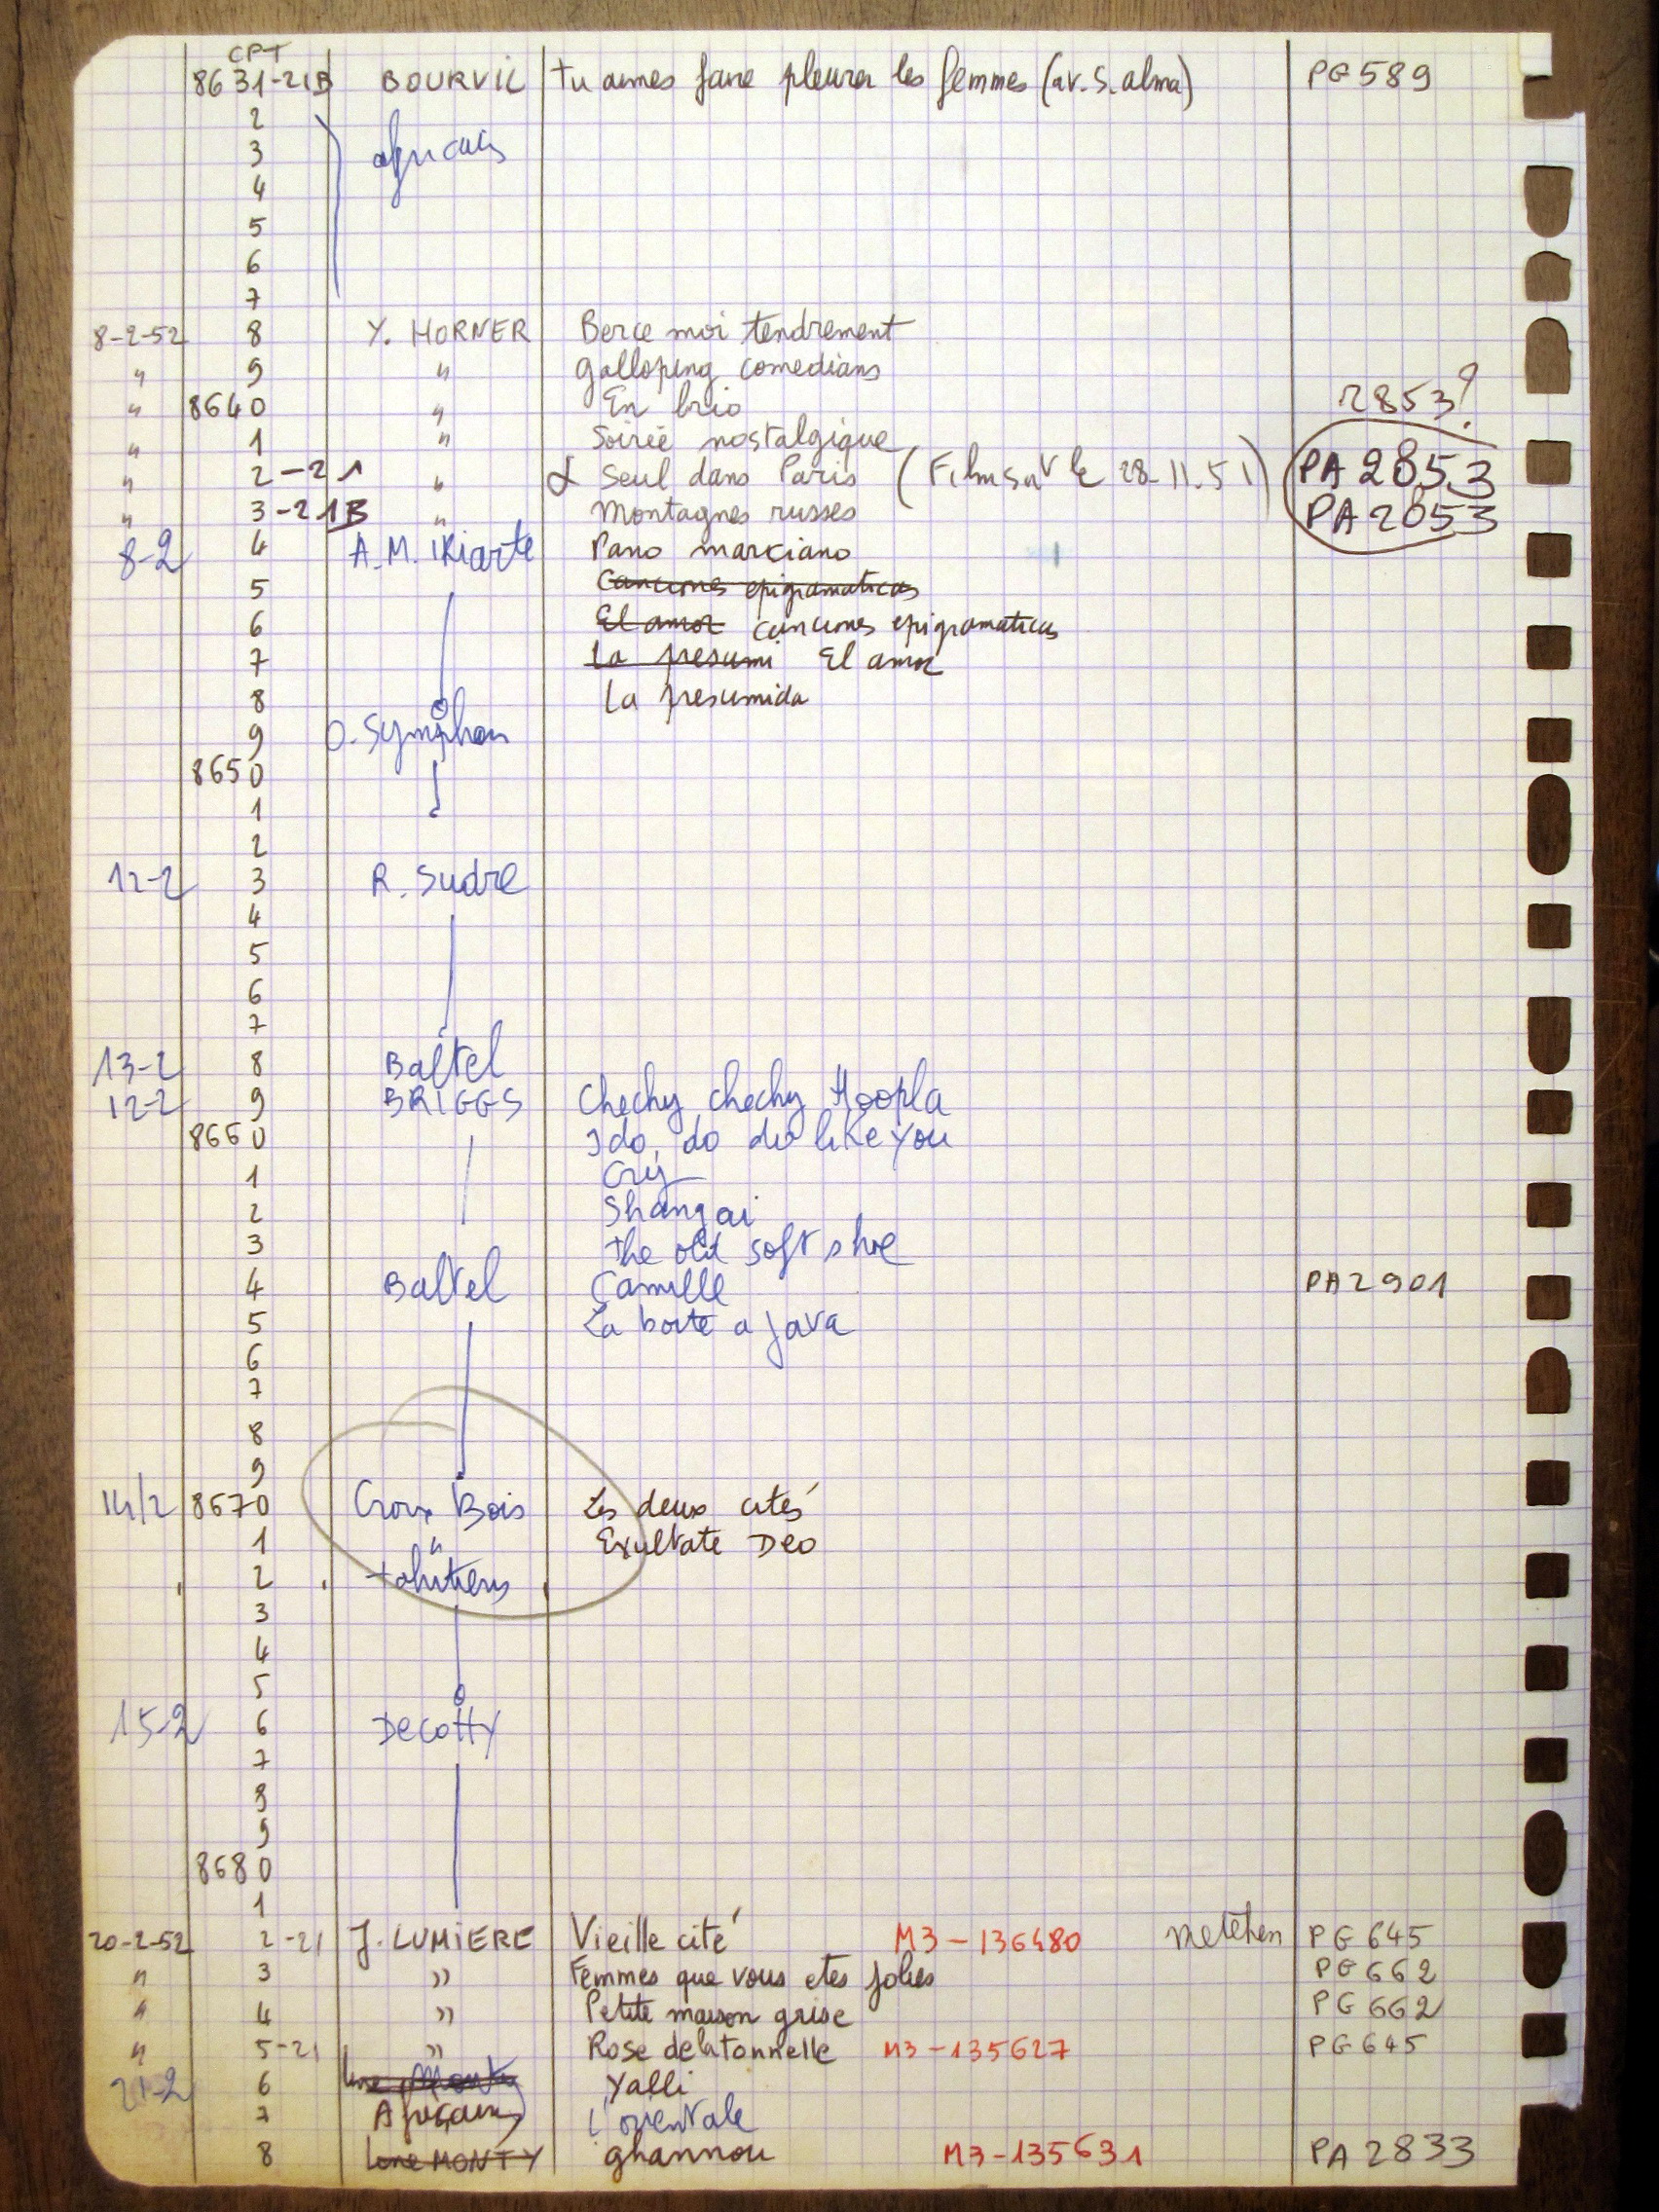 CPT
8631-21B BOURVIL tu aimes faire pleurer les femmes (av. S. alma) PG 589
2 africains
3
4
5
6
7
8-2-52 8 Y. HORNER Berce moi tendrement
" 9 " Galloping comedians
" 8640 " En brio 2853?
" 1 " Soirée nostalgique
" 2-21 " Seul dans Paris (Film 28-11.51) PA 2853
" 3-21B " Montagnes russes PA 2853
8-2 4 A.M. IRiarte Pano marciano
5 Canciones epigramaticas
6 El amor canciones epigramaticas
7 La presumi El amor
8 La presumida
9 O. Symphon
8650
1
2
12-2 3 R. Sudre
4
5
6
7
13-2 8 Baltel
12-2 9 BRIGGS Chechy chechy Hoopla
8660 I do, do do like you
1 Cry
2 Shangai
3 the old soft shoe
4 Baltel Camille PA 2901
5 La boite a java
6
7
8
9
14/2 8670 Croix Bois Les deux cités
1 " Exultate Deo
2 tahitiens
3
4
5
15-2 6 Decotty
7
8
9
8680
1
20-2-52 2-21 J. LUMIERE Vieille cité M3-136480 Metehen PG 645
" 3 " Femmes que vous etes jolies PG 662
" 4 " Petite maison grise PG 662
" 5-21 " Rose de la tonnelle M3-135627 PG 645
21-2 6 Yalli
7 Africains L'orientale
8 Line MONTY ghannou M3-135631 PA 2833